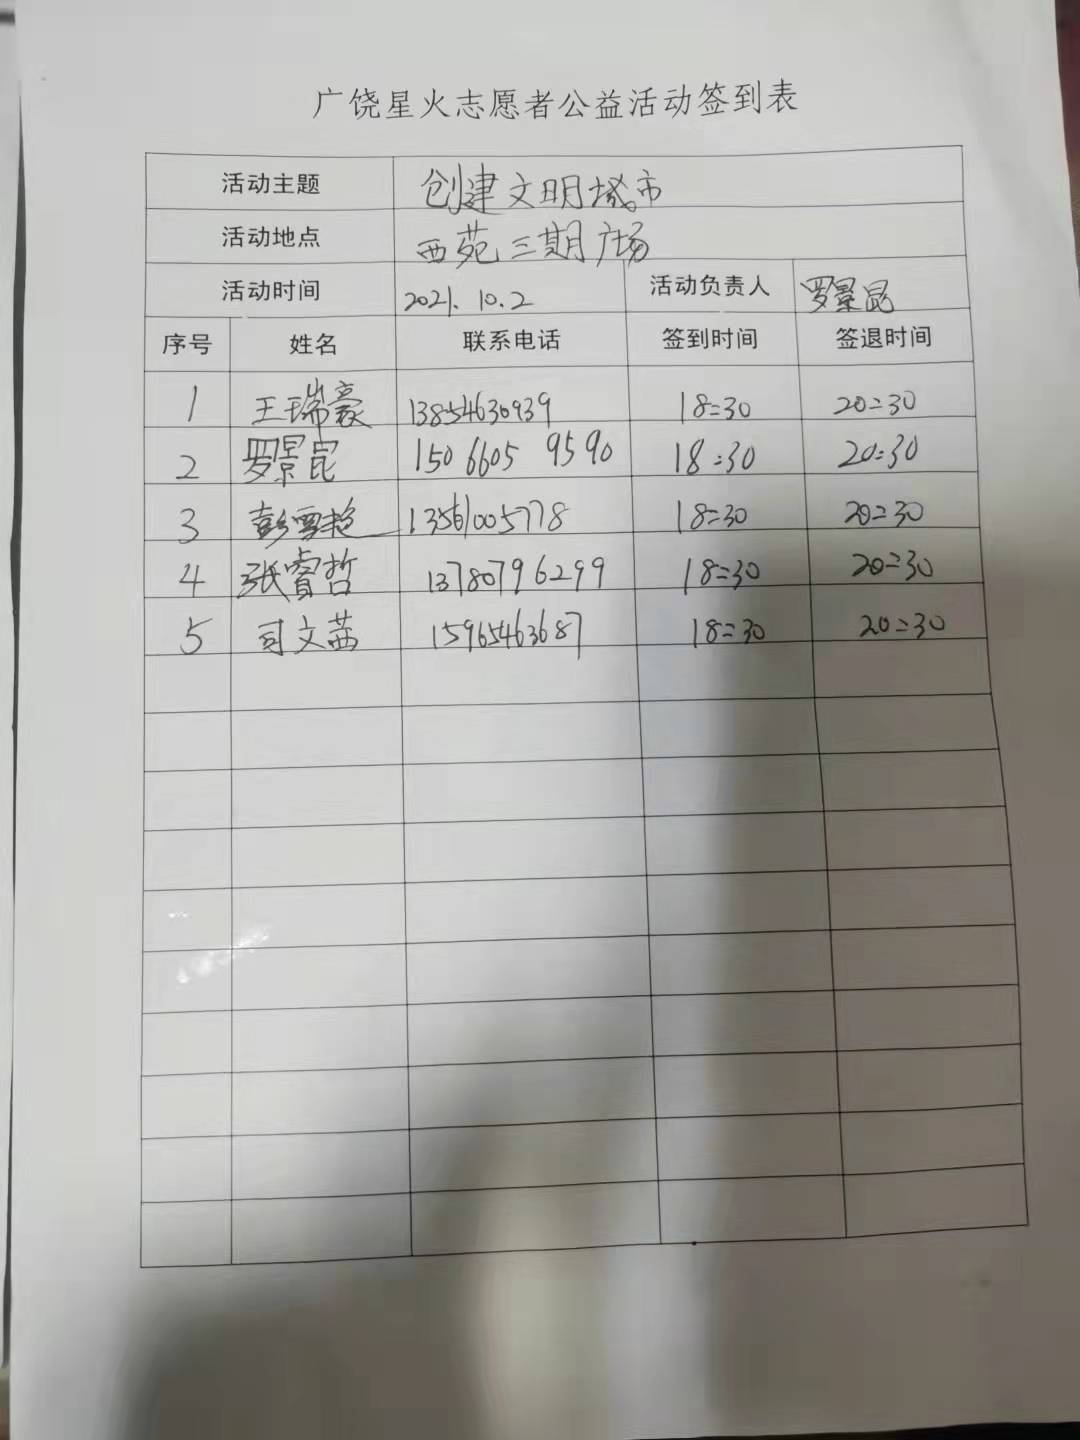 广饶星火志愿者公益活动签到表
活动主题 创建文明城市
活动地点 西苑三期广场
活动时间 2021.10.2 活动负责人 罗景昆
序号 姓名 联系电话 签到时间 签退时间
1 王瑞豪 13854630939 18:30 20:30
2 罗景昆 150 6605 9590 18:30 20:30
3 彭雪艳 13561005778 18:30 20:30
4 张睿哲 13780796299 18:30 20:30
5 司文茜 15965463687 18:30 20:30